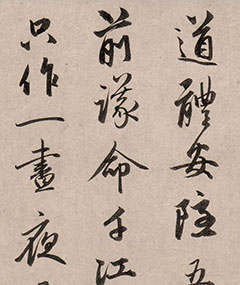 道體安隱五
前議命千江
只作一晝夜